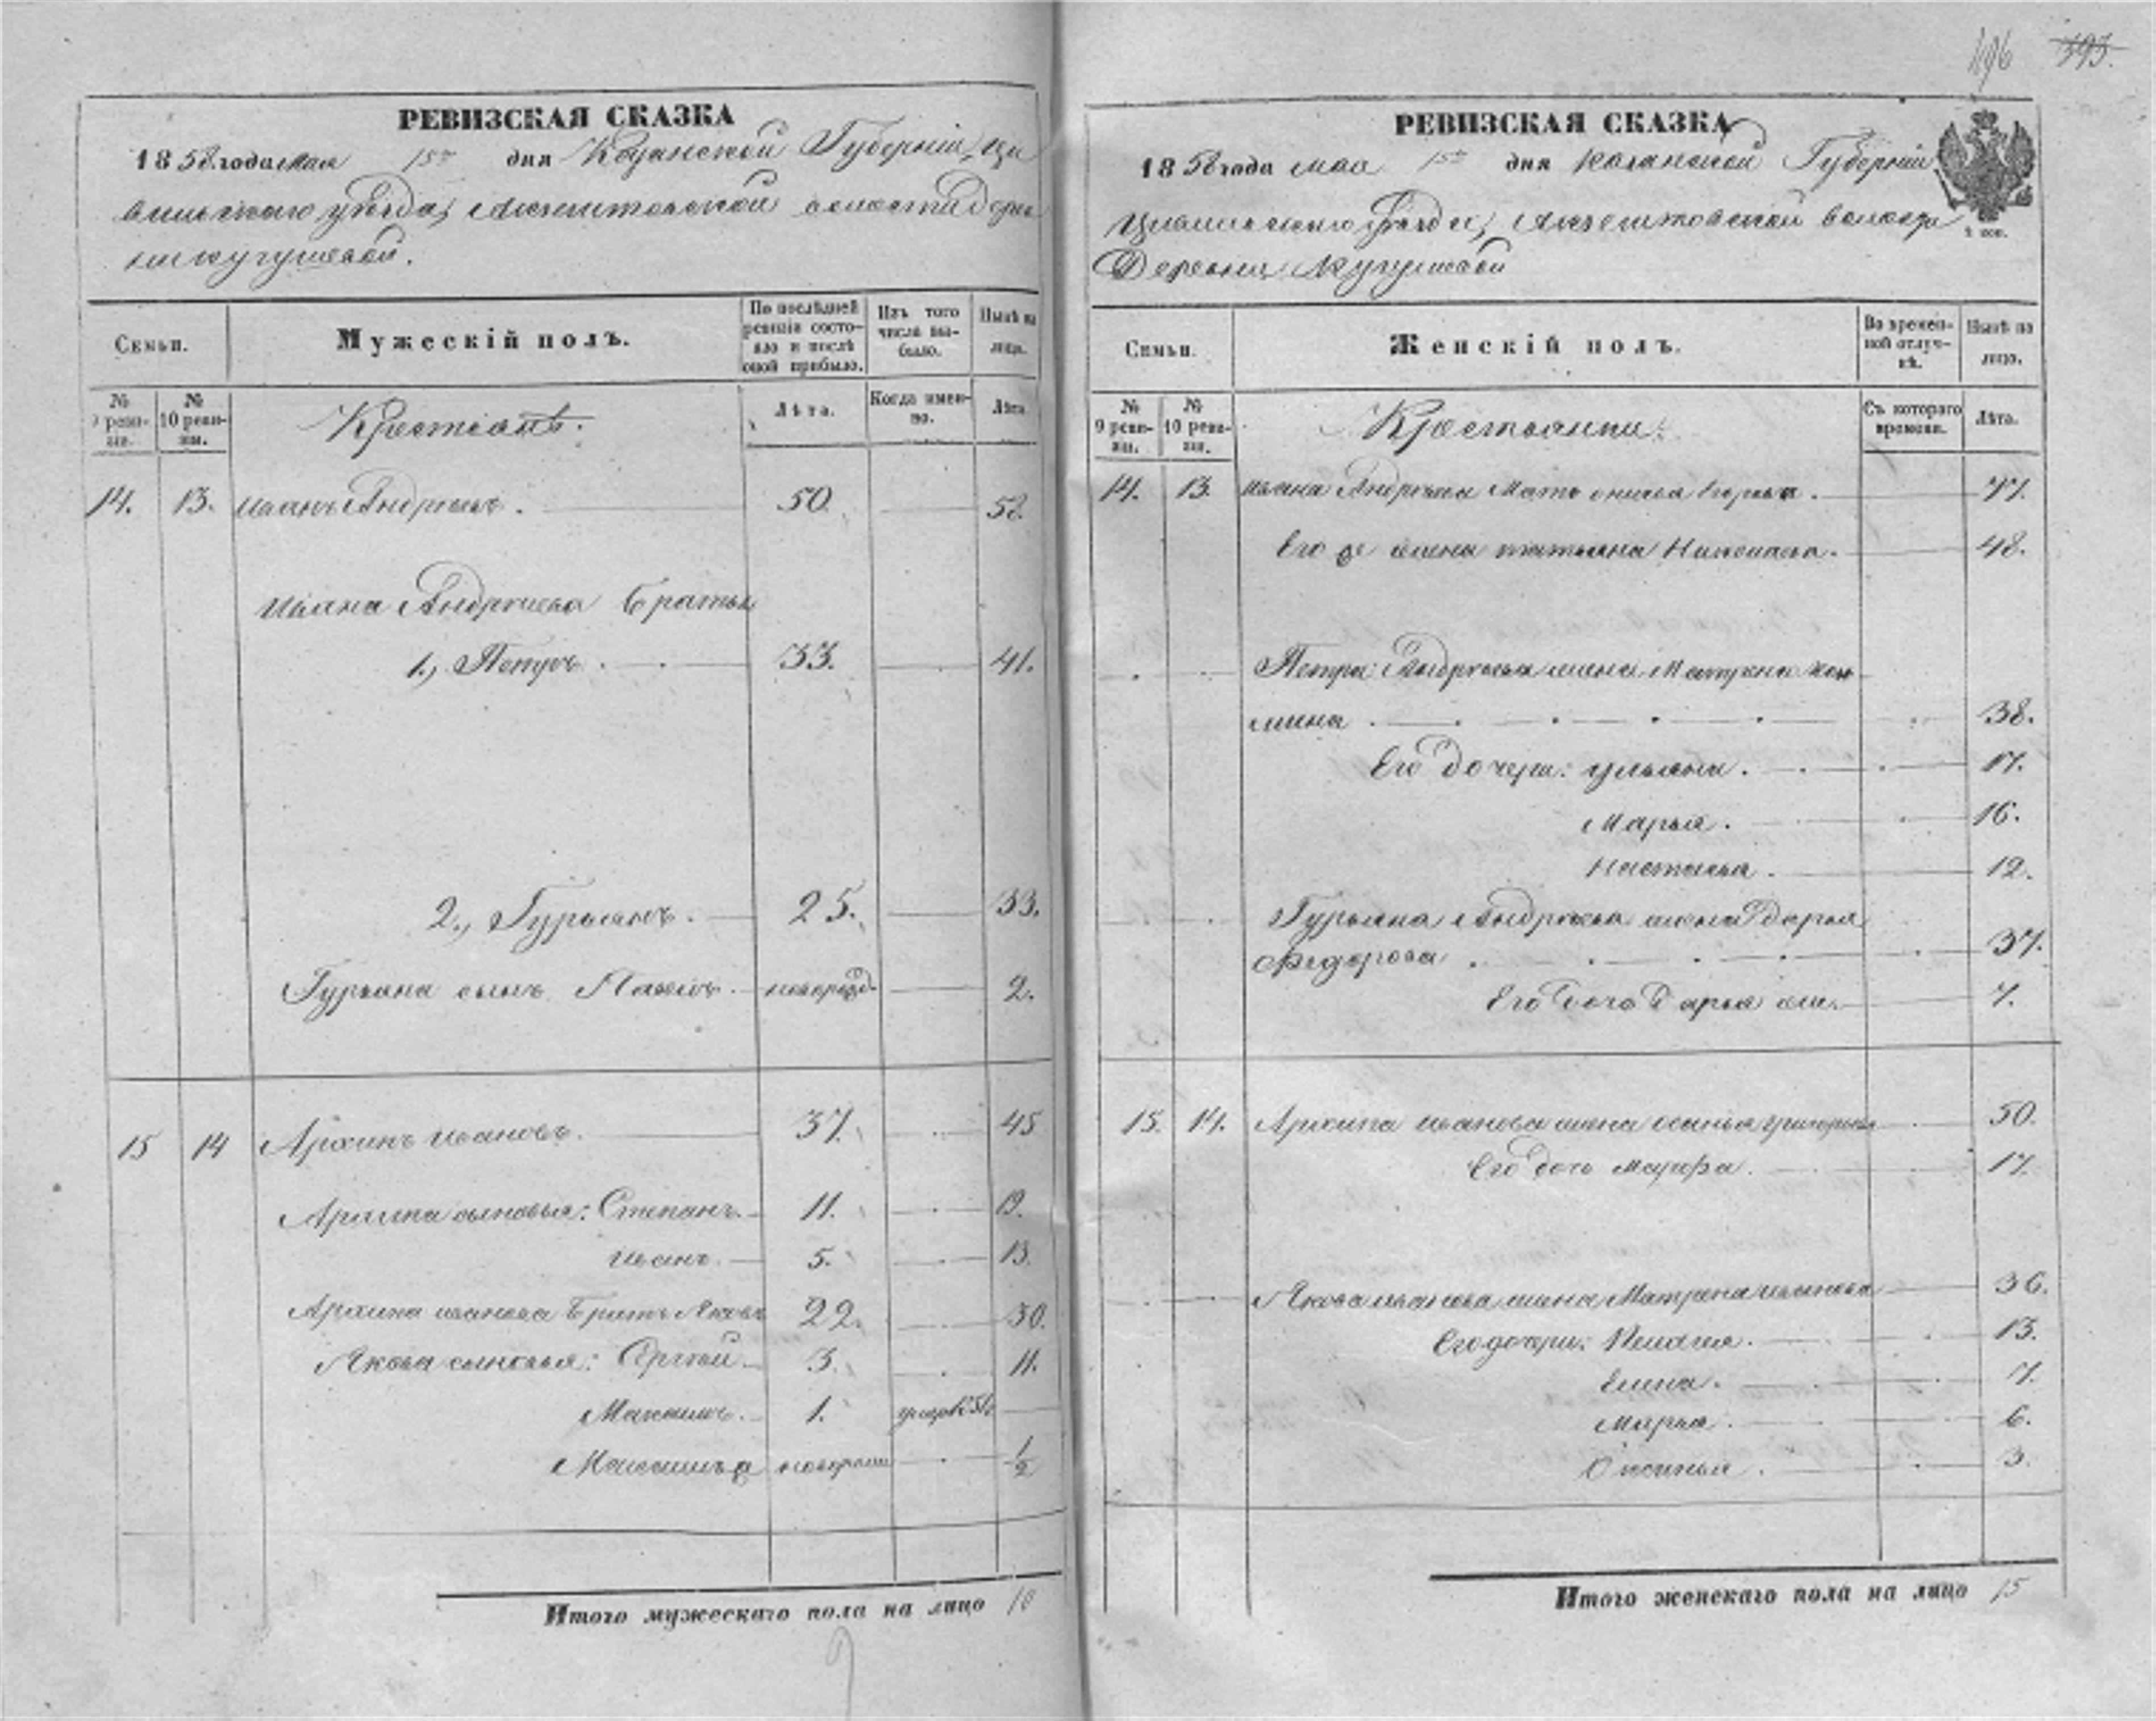 196 393.
РЕВИЗСКАЯ СКАЗКА
1858 года мая 15го дня Казанской Губерніи, Ци
вильскаго уѣзда, волости дерев
ни кугушевой.
Семьи.
Мужескій полъ.
По послѣдней ревизіи состояло и послѣ оной прибыло.
Изъ того числа выбыло.
Нынѣ на лицо.
№ 9 ревизіи.
№ 10 ревизіи.
Крестіанъ.
Лѣта.
Когда именно.
Лѣта.
14. 13. Иванъ Андреевъ. 50. 58.
Ивана Андреева братья
1., Петръ 33. 41.
2., Гурьянъ. 25. 33.
Гурьяна сынъ Павелъ новорожд. 2.
15 14 Архипъ Ивановъ. 37. 45
Архипа сыновья: Степанъ. 11. 19.
Иванъ. 5. 13.
Архипа Иванова братъ Яковъ 22. 30.
Якова сыновья: Сергей 3. 11.
Максимъ. 1.
½
Итого мужескаго пола на лицо 10
9
РЕВИЗСКАЯ СКАЗКА
1858 года мая 15го дня Казанской Губерніи
Цивильскаго уѣзда, волости
Деревни Кугушевой
2 коп.
Семьи.
Женскій полъ.
Во временной отлучкѣ.
Нынѣ на лицо.
№ 9 ревизіи.
№ 10 ревизіи.
Крестьянки.
Съ котораго времени.
Лѣта.
14. 13. Ивана Андреева Мать 77.
Его жена татьяна Николаева. 48.
Петра Андреева жена Матрена
мина 38.
Его дочери: ульяна. 17.
Марья. 16.
Настасья. 12.
Гурьяна Андреева жена дарья
Федорова 37.
Его дочь Дарья 7.
15. 14. Архипа Иванова жена 50.
Его дочь Марфа. 17.
Якова Иванова жена Матрена Иванова 36.
Его дочери: Пелагея. 13.
Елена. 7.
Марья. 6.
Оксинья. 3.
Итого женскаго пола на лицо 15